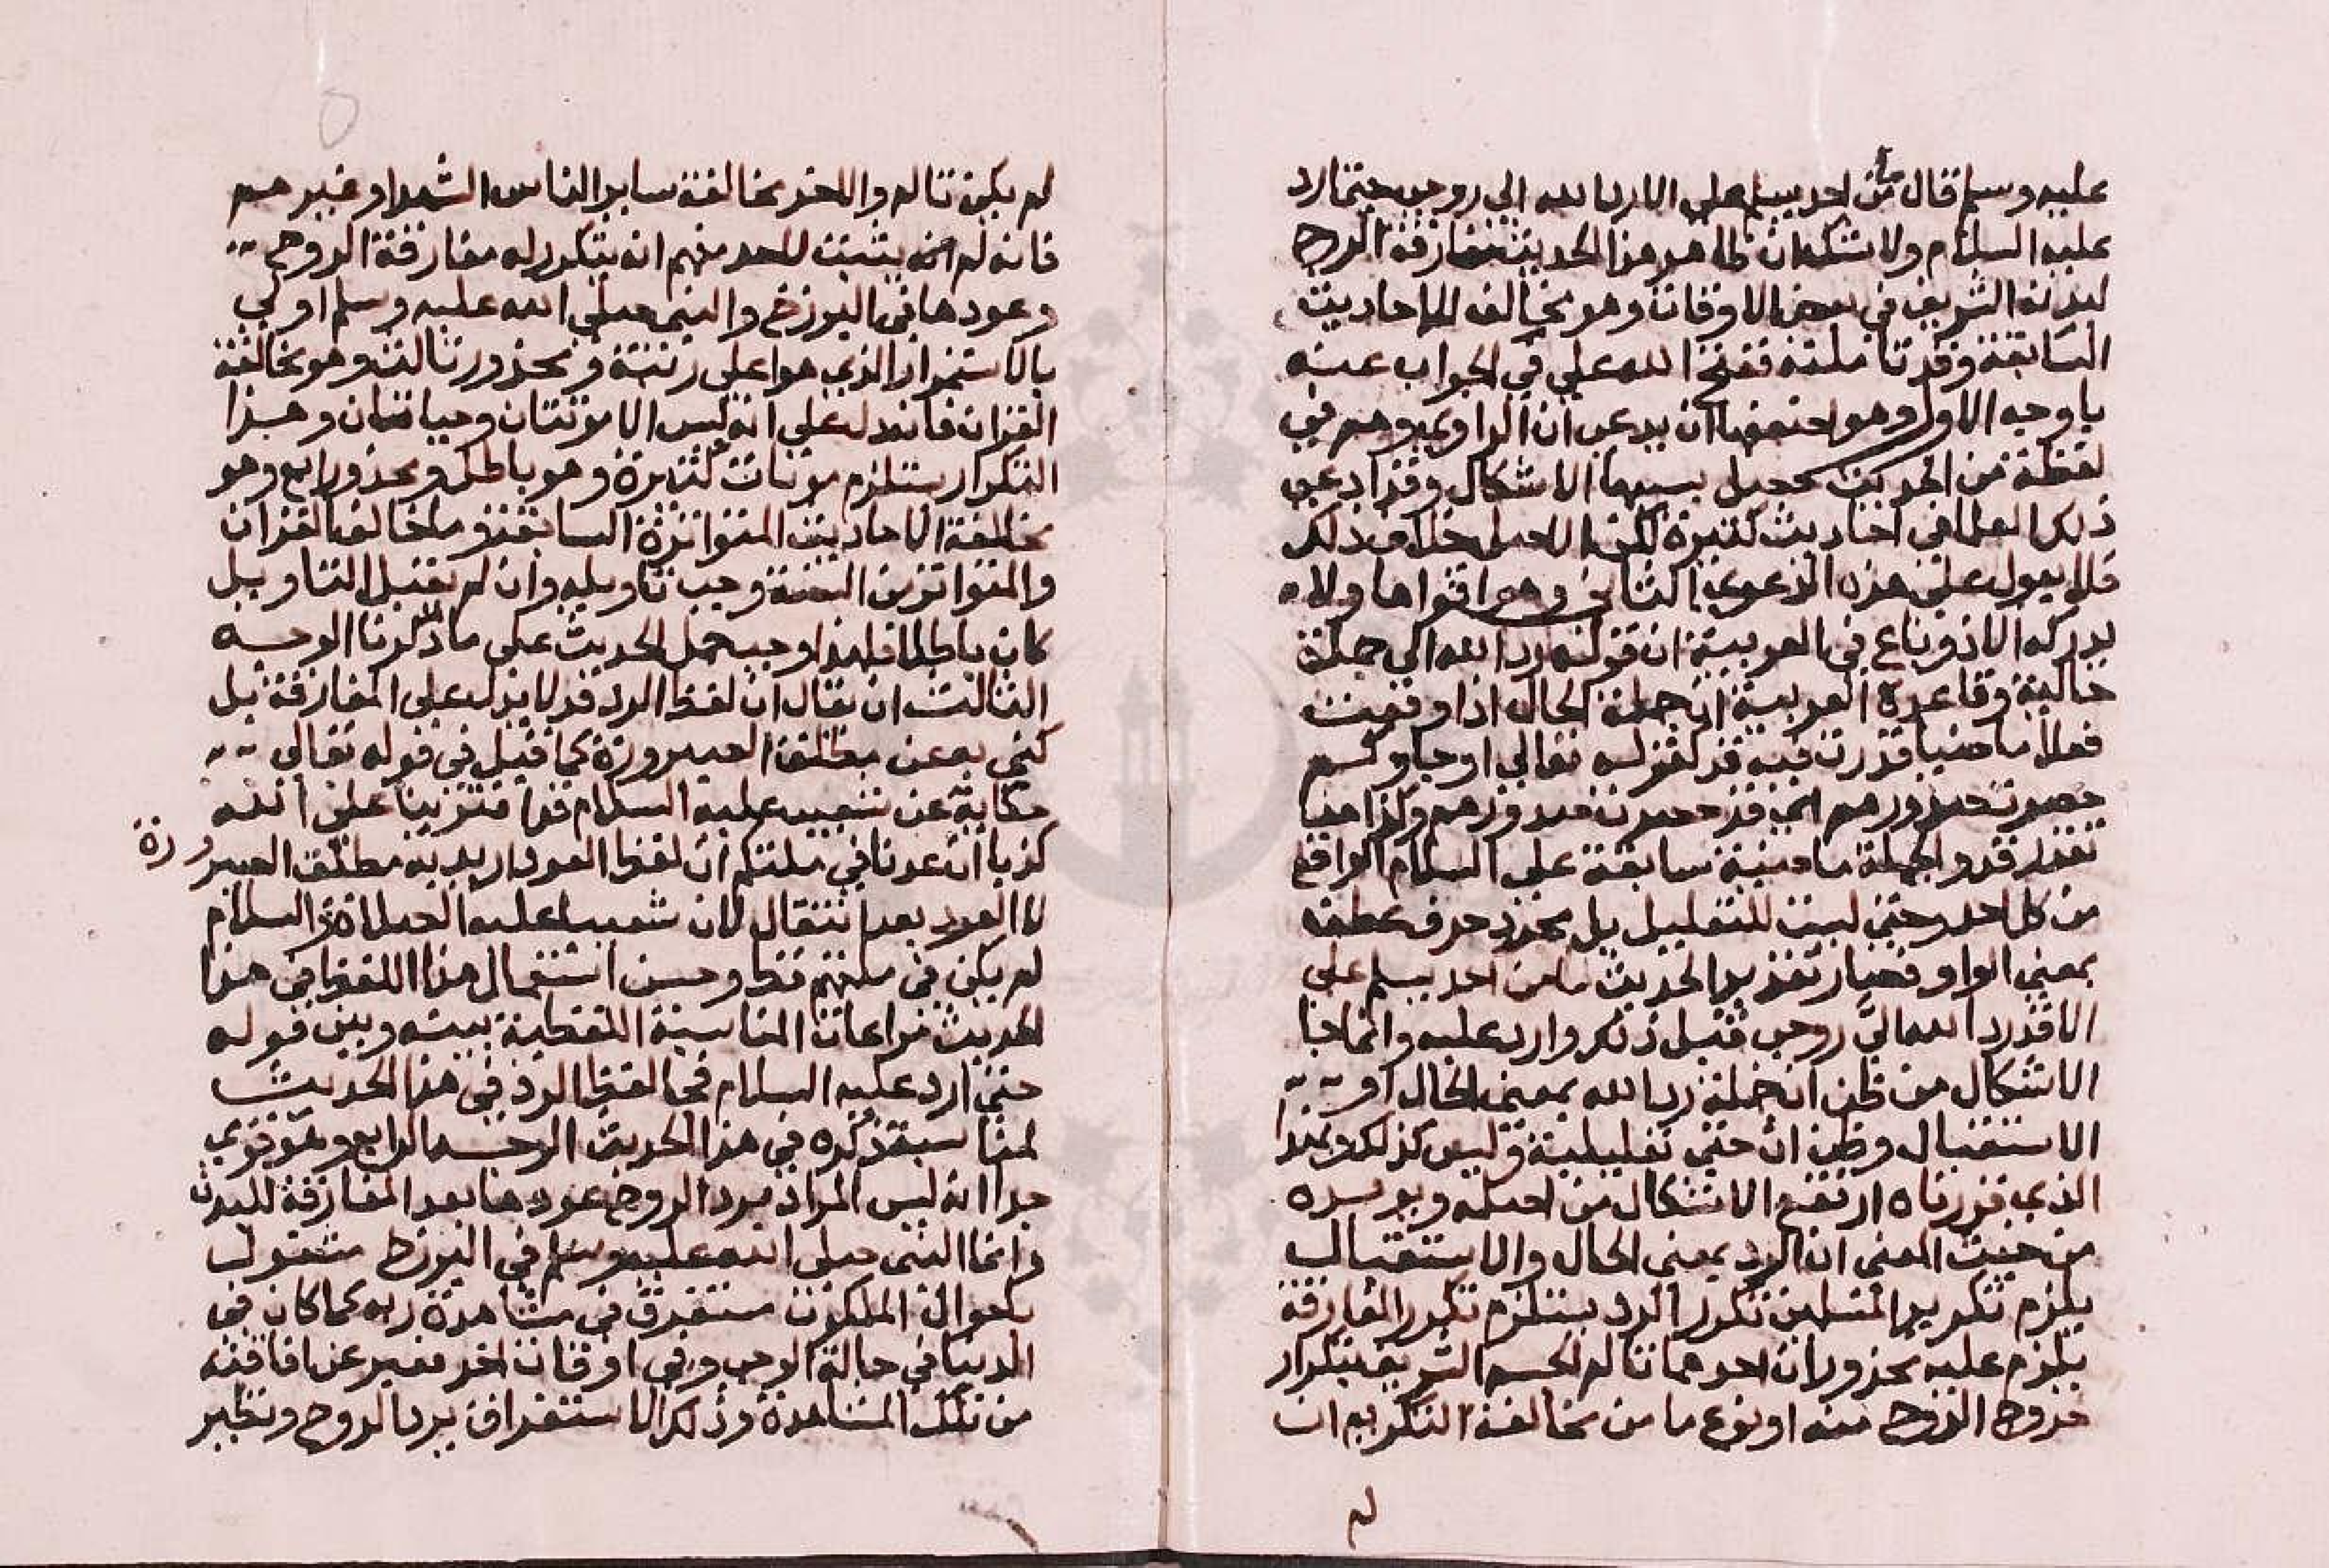 عليه وسلم قال ما من احد يسلم علي الا رد الله الي روحي حتى ارد
عليه السلام ولا شك ان ظاهر هذا الحديث مفارقة الروح
لبدنه الشريف في بعض الاوقات وهو مخالف للاحاديث
السابقة وقد تاملته ففتح الله علي في الجواب عنه
باوجه الاول وهو اضعفها ان يدعى ان الراوي وهم في
لفظة من الحديث حصل بسببها الاشكال وقد ادعى
ذلك العلما في احاديث كثيرة لكن الاصل خلاف ذلك
فلا يعول على هذه الدعوى الثاني وهو اقواها ولا
يدركه الا ذو باع في العربية ان قوله رد الله الي جملة
حالية وقاعدة العربية ان جملة الحال اذا وقعت
فعلا ماضيا قدرت فيه قد كقوله تعالى او جاوكم
حصرت صدورهم اي قد حصرت صدورهم وكذا هنا
تقدر قد والجملة ماضية سابقة على السلام الواقع
من كل احد وحتى ليست للتعليل بل مجرد حرف عطف
بمعنى الواو فصار تقدير الحديث ما من احد يسلم علي
الا قد رد الله الي روحي قبل ذلك وارد عليه وانما جا
الاشكال من ظن ان جملة رد الله بمعنى الحال او
الاستقبال وظن ان حتى تعليلية وليس كذلك وبهذا
الذي قررناه ارتفع الاشكال من اصله ويويده
من حيث المعنى ان الرد بمعنى الحال والاستقبال
يلزم تكرير المسلمين تكرر الرد يستلزم تكرر المفارقة
يلزم عليه محذوران احدهما تالم الجسم الشريف بتكرار
خروج الروح منه او نوع ما من مخالفة التكريم ان
لم
لم يكن تالم والاخر مخالفة ساير الناس الشهدا وغيرهم
فانه لم يثبت لاحد منهم انه يتكرر له مفارقة الروح
وعودها في البرزخ والنبي صلى الله عليه وسلم اولى
بالاستمرار الذي هو اعلى رتبة ومحذور ثالث وهو مخالفة
القران فانه دل على انه ليس الا موتتان وحياتان وهذا
التكرار يستلزم موتات كثيرة وهو باطل ومحذور رابع وهو
مخالفة الاحاديث المتواترة السابقة وما خالف القران
والمتواتر من السنة وجب تاويله وان لم يقبل التاويل
كان باطلا فلهذا وجب حمل الحديث على ما ذكرنا الوجه
الثالث ان يقال ان لفظ الرد قد لا يدل على المفارقة بل
كنى به عن مطلق الصيرورة كما قيل في قوله تعالى
حكاية عن شعيب عليه السلام قد افترينا على الله
كذبا ان عدنا في ملتكم ان لفظ العود اريد به مطلق الصيرورة
لا العود بعد انتقال لان شعيبا عليه الصلاة والسلام
لم يكن في ملتهم قط وحسن استعمال هذا اللفظ في هذا
الحديث مراعات المناسبة اللفظية بينه وبين قوله
حتى ارد عليه السلام فجا لفظ الرد في هذا الحديث
لمناسبة ذكره في هذا الحديث الوجه الرابع وهو قوي
جدا انه ليس المراد برد الروح عودها بعد المفارقة للبدن
وانما النبي صلى الله عليه وسلم في البرزخ مشغول
باحوال الملكوت مستغرق في مشاهدة ربه كما كان في
الدنيا في حالة الوحي وفي اوقات اخر فعبر عن افاقته
من تلك المشاهدة وذلك الاستغراق برد الروح ونظير